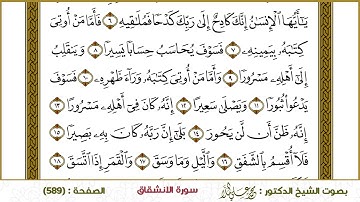 يَٰٓأَيُّهَا ٱلْإِنسَٰنُ إِنَّكَ كَادِحٌ إِلَىٰ رَبِّكَ كَدْحًا فَمُلَٰقِيهِ ٦ فَأَمَّا مَنْ أُوتِىَ
كِتَٰبَهُۥ بِيَمِينِهِۦ ٧ فَسَوْفَ يُحَاسَبُ حِسَابًا يَسِيرًا ٨ وَيَنقَلِبُ
إِلَىٰٓ أَهْلِهِۦ مَسْرُورًا ٩ وَأَمَّا مَنْ أُوتِىَ كِتَٰبَهُۥ وَرَآءَ ظَهْرِهِۦ ١٠ فَسَوْفَ
يَدْعُوا۟ ثُبُورًا ١١ وَيَصْلَىٰ سَعِيرًا ١٢ إِنَّهُۥ كَانَ فِىٓ أَهْلِهِۦ مَسْرُورًا ١٣
إِنَّهُۥ ظَنَّ أَن لَّن يَحُورَ ١٤ بَلَىٰٓ إِنَّ رَبَّهُۥ كَانَ بِهِۦ بَصِيرًا ١٥
فَلَآ أُقْسِمُ بِٱلشَّفَقِ ١٦ وَٱلَّيْلِ وَمَا وَسَقَ ١٧ وَٱلْقَمَرِ إِذَا ٱتَّسَقَ ١٨
بصوت الشيخ الدكتور : سورة الانشقاق الصفحة : (589)